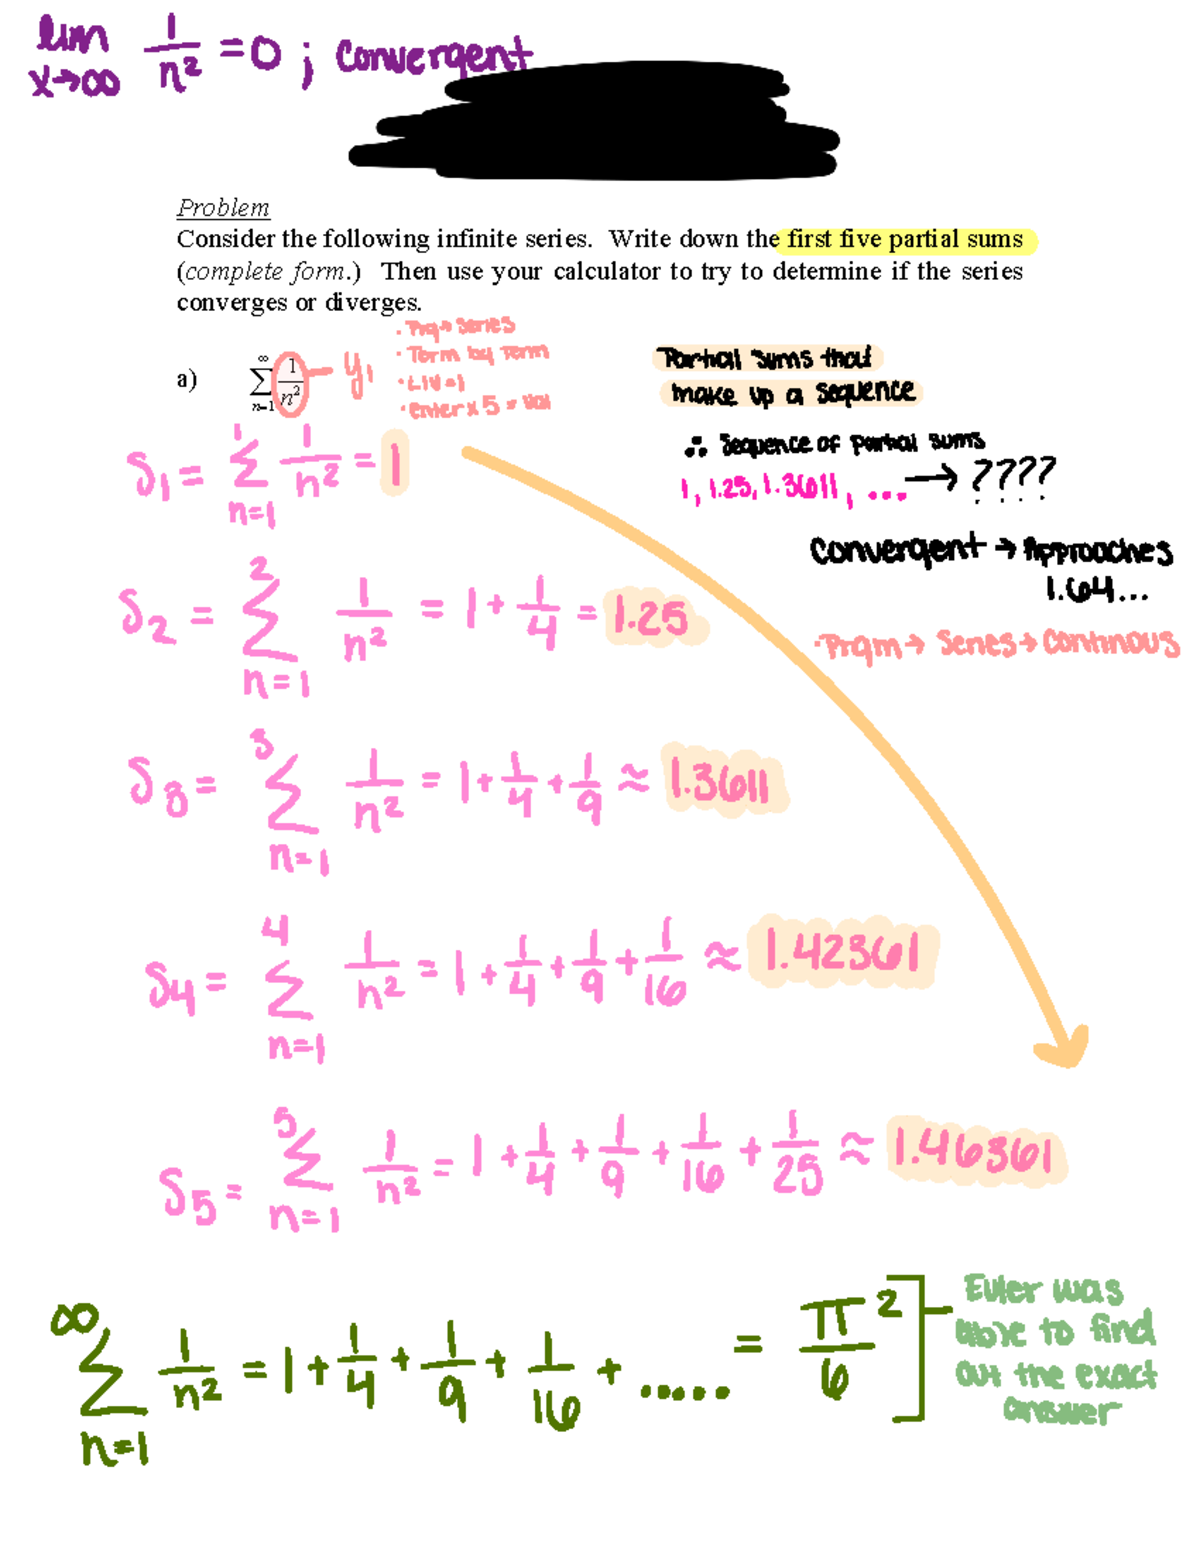 lim x→∞ 1/n² = 0 ; convergent
Problem
Consider the following infinite series. Write down the first five partial sums
(complete form.) Then use your calculator to try to determine if the series
converges or diverges.
a) ∞ Σ n=1 1/n² — y₁
· Prg→ Series
· Term by Term
· LIV=1
· enter x 5 = val
Partial sums that
make up a sequence
∴ Sequence of partial sums
1, 1.25, 1.3611, ... → ????
convergent → Approaches
1.64...
·Prgm→ Series→ Continous
S₁ = 1 Σ n=1 1/n² = 1
S₂ = 2 Σ n=1 1/n² = 1 + 1/4 = 1.25
S₃ = 3 Σ n=1 1/n² = 1 + 1/4 + 1/9 ≈ 1.3611
S₄ = 4 Σ n=1 1/n² = 1 + 1/4 + 1/9 + 1/16 ≈ 1.42361
S₅ = 5 Σ n=1 1/n² = 1 + 1/4 + 1/9 + 1/16 + 1/25 ≈ 1.46361
∞ Σ n=1 1/n² = 1 + 1/4 + 1/9 + 1/16 + ..... = π²/6
Euler was
able to find
out the exact
answer